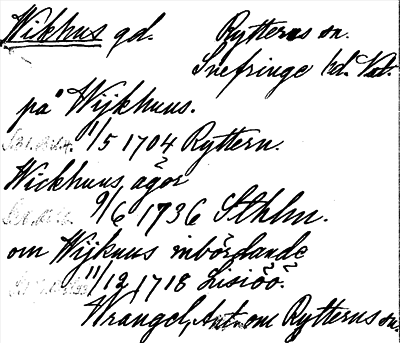 Wikhus gd. Rytterns sn.
Snefringe hd. Vstm.
på Wijkhuus.
11/5 1704 Ryttern.
Wickhuus, ägor
9/6 1736 Sthlm.
om Wijkuus inbördande
11/12 1718 Lisiöö.
Wrangel, Ant. om Rytterns sn.